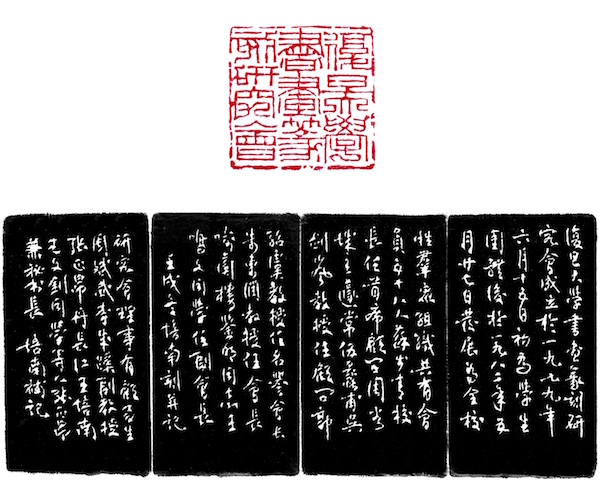 復旦大學
書畫篆
刻研究會
復旦大學書畫篆刻研
究會成立於一九七九年
六月十五日初爲學生
團體後於一九八二年五
月廿七日發展爲全校
性羣衆組織共有會
員五十八人蘇步青校
長任首席顧問周谷
城王蘧常伍蠡甫吳
劍嵐教授任顧問郭
紹虞教授任名譽會長
朱東潤教授任會長
喻蘅樓鑒明同志王
鳴文同學任副會長
壬戌培南刻并記
研究會理事有顧易生
周斌武李蹊副教授
張長江王培南
文釗同學等人張
兼秘書長 培南補記